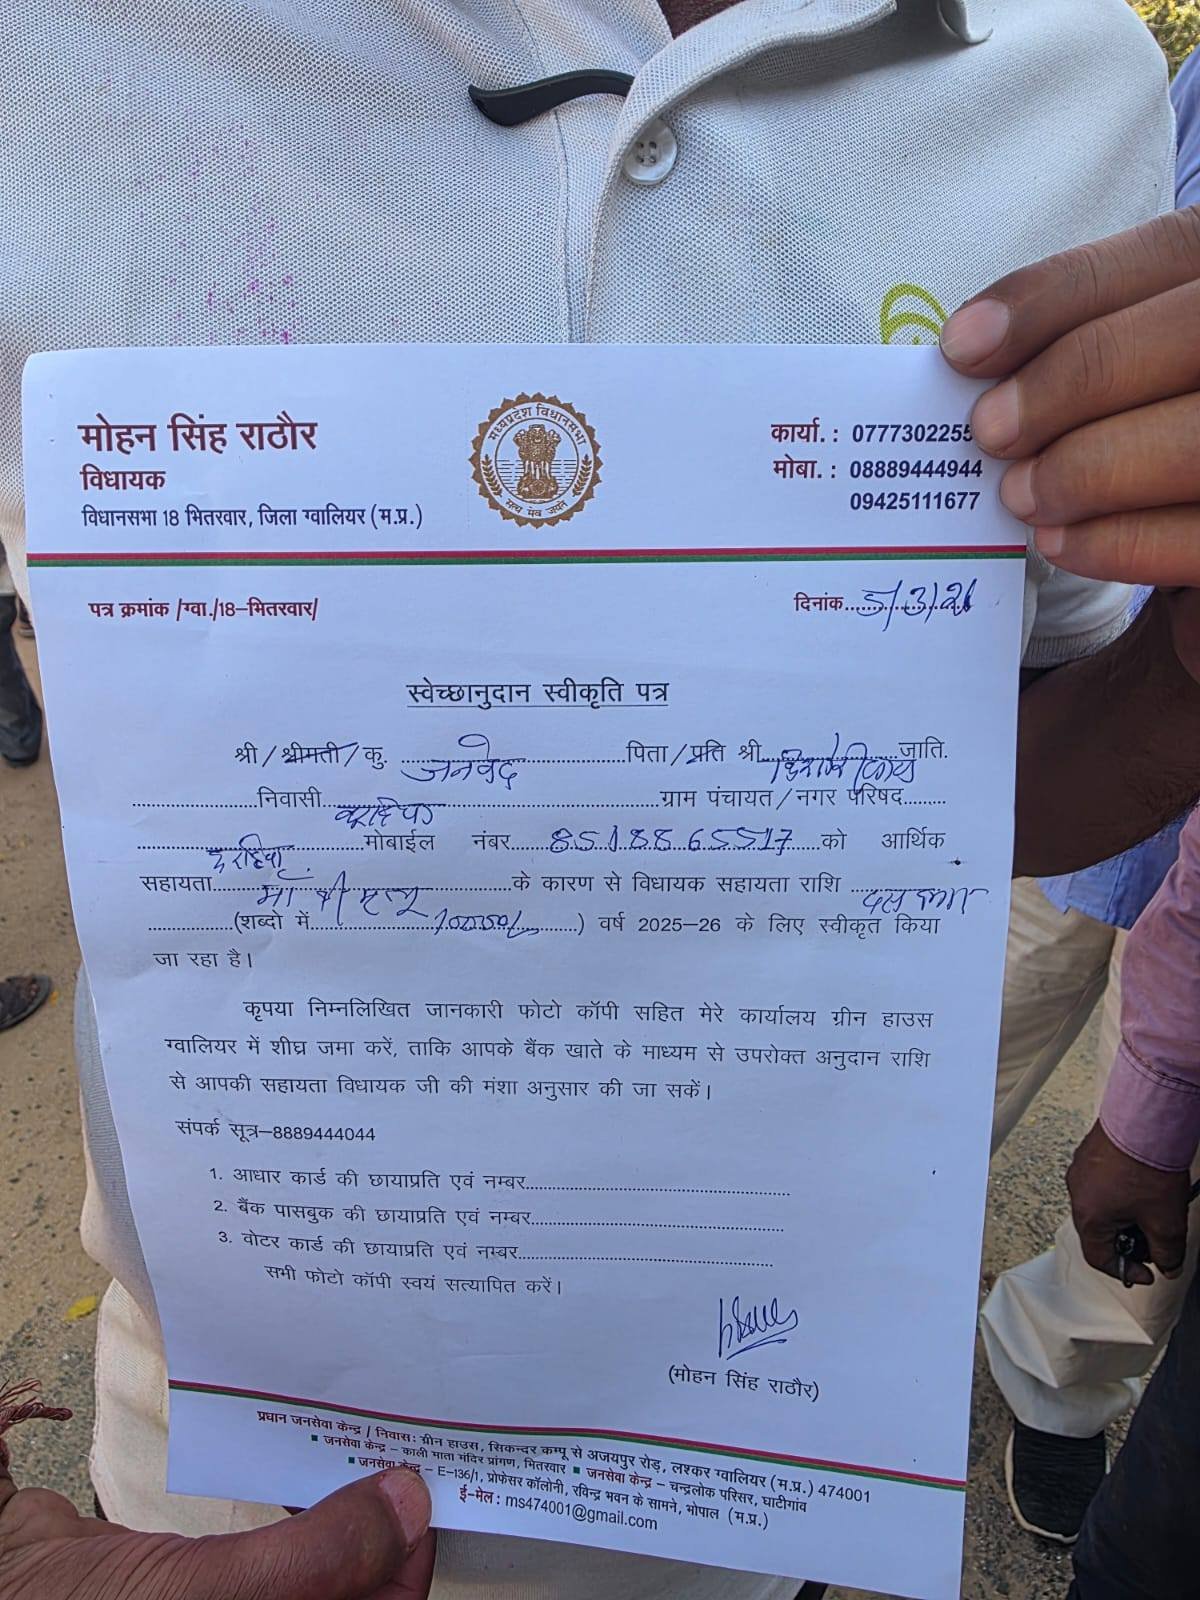 मोहन सिंह राठौर
विधायक
विधानसभा 18 भितरवार, जिला ग्वालियर (म.प्र.)
मध्यप्रदेश विधानसभा
सत्य मेव जयते
कार्या. : 0777302255
मोबा. : 08889444944
09425111677
पत्र क्रमांक /ग्वा./18–भितरवार/
दिनांक 5/3/26
स्वेच्छानुदान स्वीकृति पत्र
श्री / श्रीमती / कु. जनवेद पिता / प्रति श्री जाति.
निवासी ग्राम पंचायत / नगर परिषद
मोबाईल नंबर 8518865517 को आर्थिक
सहायता माँ की मृत्यू के कारण से विधायक सहायता राशि दस हजार
(शब्दो में 10000/- ) वर्ष 2025–26 के लिए स्वीकृत किया
जा रहा है।
कृपया निम्नलिखित जानकारी फोटो कॉपी सहित मेरे कार्यालय ग्रीन हाउस
ग्वालियर में शीघ्र जमा करें, ताकि आपके बैंक खाते के माध्यम से उपरोक्त अनुदान राशि
से आपकी सहायता विधायक जी की मंशा अनुसार की जा सकें।
संपर्क सूत्र–8889444044
1. आधार कार्ड की छायाप्रति एवं नम्बर
2. बैंक पासबुक की छायाप्रति एवं नम्बर
3. वोटर कार्ड की छायाप्रति एवं नम्बर
सभी फोटो कॉपी स्वयं सत्यापित करें।
(मोहन सिंह राठौर)
प्रधान जनसेवा केन्द्र / निवास: ग्रीन हाउस, सिकन्दर कम्पू से अजयपुर रोड़, लश्कर ग्वालियर (म.प्र.) 474001
▪ जनसेवा केन्द्र – काली माता मंदिर प्रांगण, भितरवार ▪ जनसेवा केन्द्र – चन्द्रलोक परिसर, घाटीगांव
▪ जनसेवा केन्द्र – E-136/1, प्रोफेसर कॉलोनी, रविन्द्र भवन के सामने, भोपाल (म.प्र.)
ई–मेल : ms474001@gmail.com